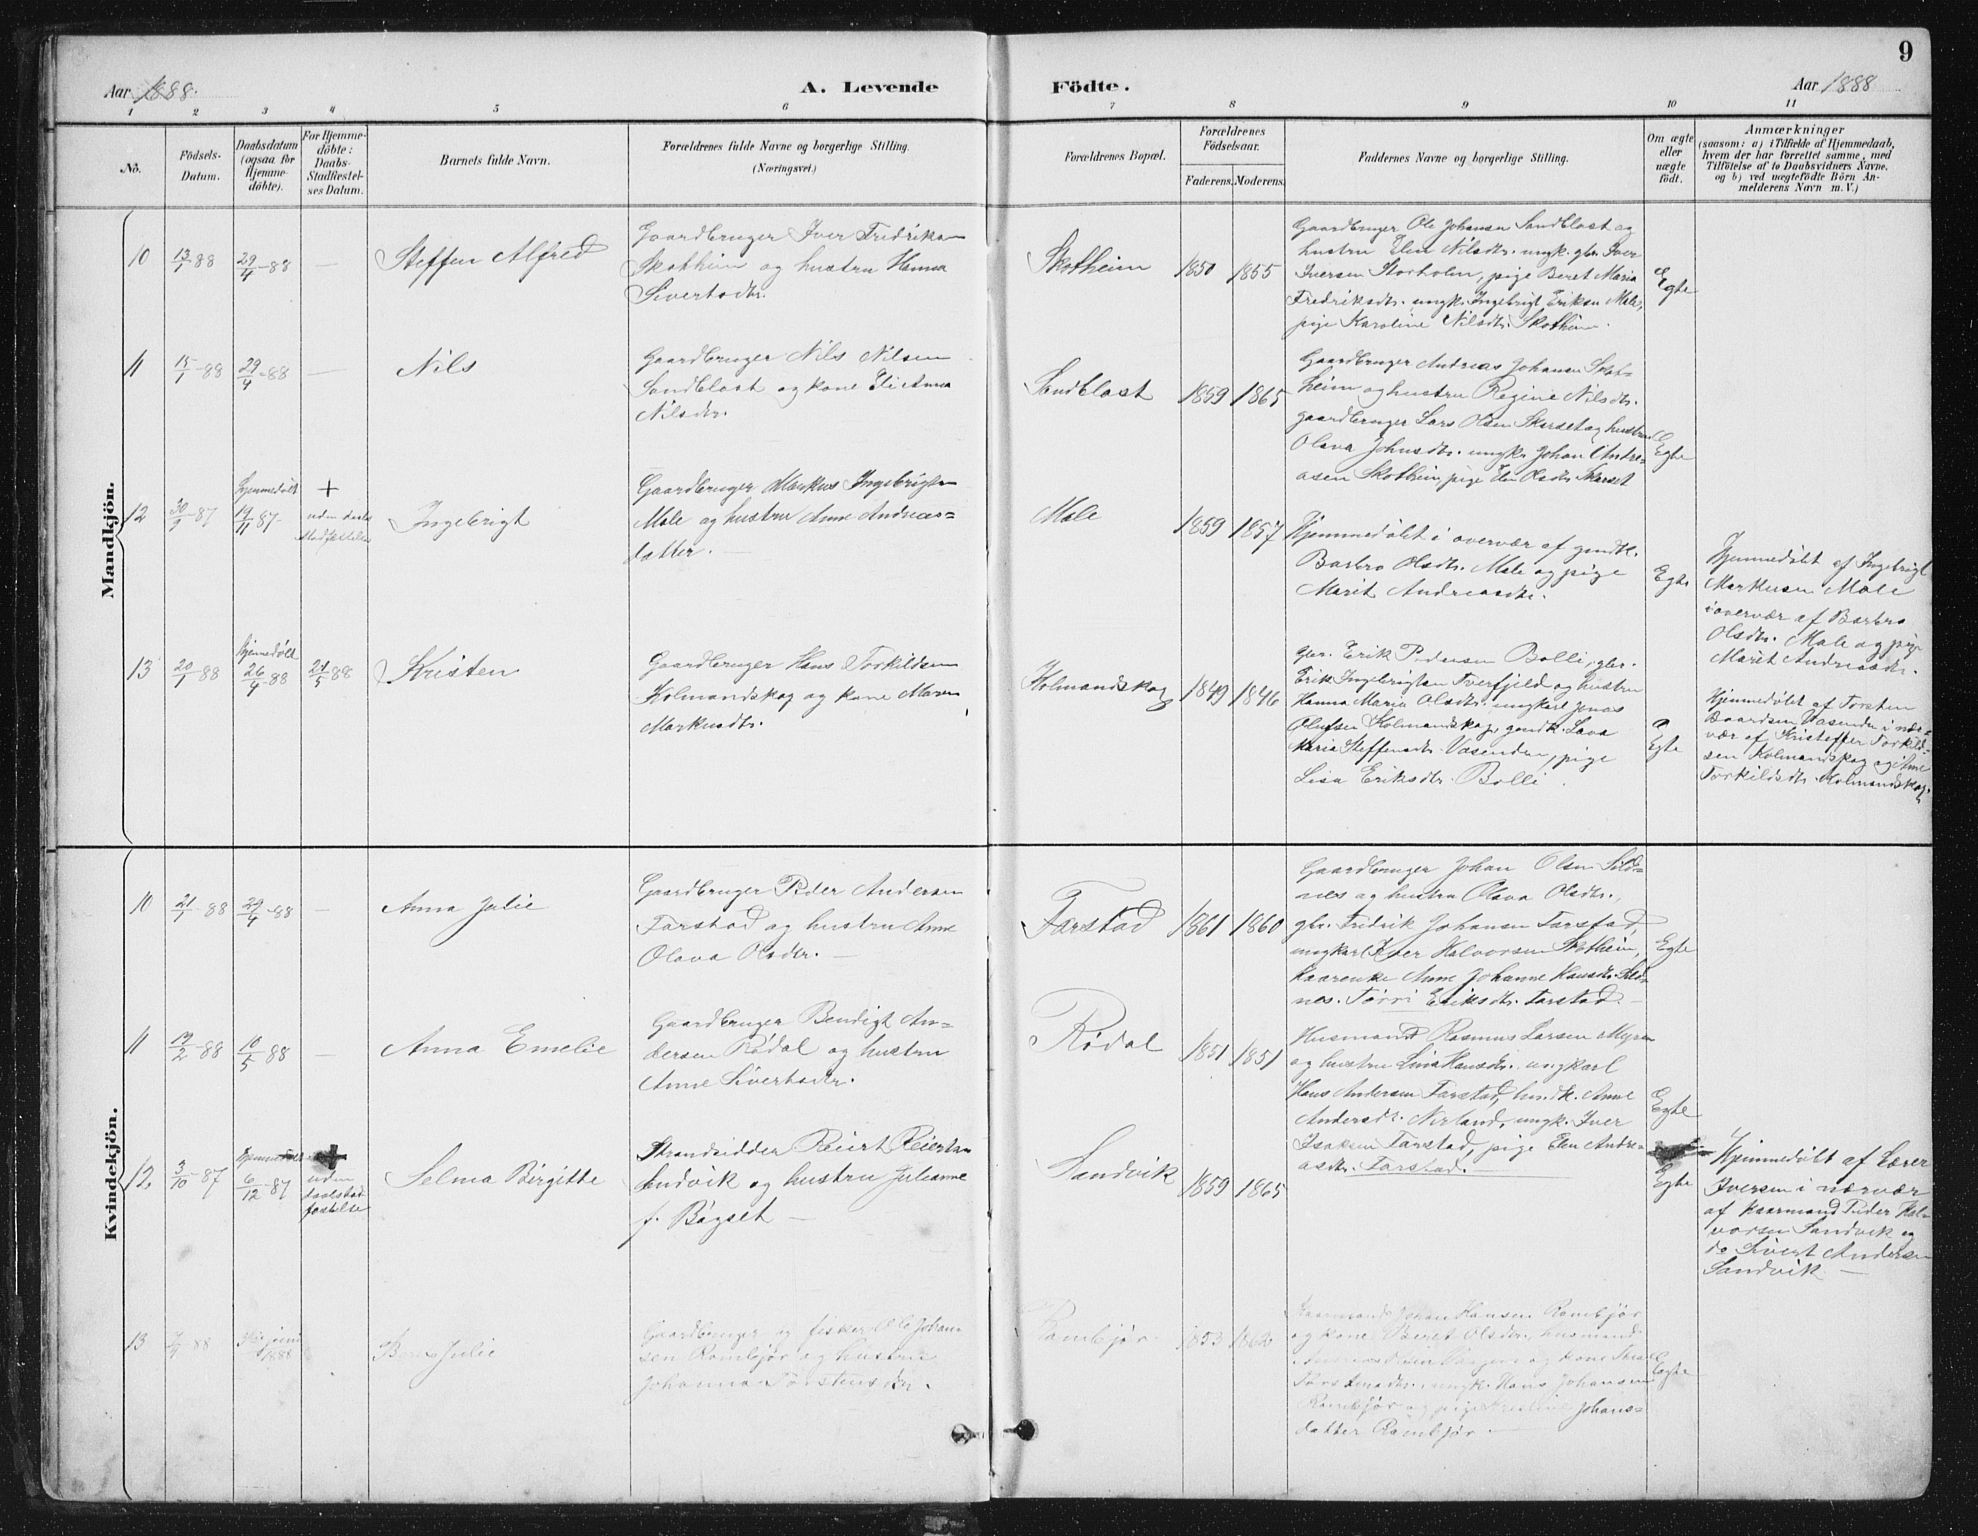 9
Aar 1888.
A. Levende
Födte.
Aar 1888
1 2 3 4 5 6 7 8 8 9 10 11
No.
Födsels-
Datum.
Daabsdatum
(ogsaa for
Hjemme-
döbte).
For Hjemme-
döbte:
Daabs-
Stadfæstel-
ses Datum.
Barnets fulde Navn.
Forældrenes fulde Navne og borgerlige Stilling.
(Næringsvei.)
Forældrenes Bopæl.
Forældrenes
Födselsaar.
Faderens. Moderens.
Faddernes Navne og borgerlige Stilling.
Om ægte
eller
uægte
födt.
Anmærkninger
(saasom: a) i Tilfælde af Hjemmedaab,
hvem der har forrettet samme, med
Tilföielse af to Daabsvidners Navne,
og b) ved uægtefödte Börn An-
melderens Navn m. V.)
Mandkjön.
10 13/1 88 29/4-88 — Steffen Alfred
Gaardbruger Iver Fredriksen
Skotheim og hustru Hanna
Sivertsdtr.
Skotheim 1850 1855
Gaardbruger Ole Johansen Sandblast og
hustru Elen Nilsdtr. ungk. gbr. Iver
Iversen Storholm, pige Beret Maria
Fredriksdtr. ungk. Ingebrigt Eriksen Male,
pige Karoline Nilsdtr. Skotheim.
Egte
11 15/1-88 29/4-88 — Nils
Gaardbruger Nils Nilsen
Sandblast og kone Eli Anna
Nilsdtr.
Sandblast 1859 1865
Gaardbruger Andreas Johansen Skot-
heim og hustru Regine Nilsdtr.
gaardbruger Lars Olsen Skarset og hustru
Olava Johnsdtr. ungk. Johan Andre-
asen Skotheim, pige Elen Olsdtr. Skarset
Egte
12 30/9-87 hjemmedøbt 19/11 87- +
uden daabs
stadfæstelse
Ingebrigt
Gaardbruger Markus Ingebrigtsen
Male og hustru Anne Andreas=
datter. —
Male 1859 1857
Hjemmedøbt i overvær af gmdk.
Barbro Olsdtr. Male og pige
Marit Andreasdtr.
Egte
Hjemmedøbt af Ingebrigt
Markusen Male
i overvær af Barbro
Olsdtr. Male og pige
Marit Andreasdtr.
13 20/1-88 hjemmedøbt 26/4 88 21/5 88 Kristen
Gaardbruger Hans Torkildsen
Kolmandskog og kone Maren
Markusdtr.
Kolmandskog 1849 1846
gbr. Erik Pedersen Bolli, gbr.
Erik Ingebrigtsen Tverfjeld og hustru
Hanna Maria Olsdtr. ungkarl Jonas
Olufsen Kolmandskog, gmdk. Lava
Maria Steffensdtr. Vasenden, pige
Lisa Eriksdtr. Bolli.
Egte
Hjemmedøbt af Torsten
Baardsen Vasenden i nær-
vær af Kristoffer Torkild-
sen Kolmandskog og Ane
Torkildsdtr. Kolmandskog.
Kvindekjön.
10 21/1-88 29/4-88 — Anna Julie
Gaardbruger Peder Andersen
Farstad og hustru Anne
Olava Olsdtr. —
Farstad 1861 1860
Gaardbruger Johan Olsen Sild-
nes og hustru Olava Olsdtr.,
gbr. Fredrik Johansen Farstad,
ungkarl Iver Halvorsen Skotheim,
kaarenke Anne Johanne Hansdtr. Sild-
nes. Torri Eriksdtr. Farstad —
Egte
11 19/2-88 10/5-88 — Anna Emelie
Gaardbruger Bendigt An-
dersen Rødal og hustru
Anne Sivertsdtr.
Rødal 1851 1851
Husmand Rasmus Larsen Myren
og hustru Lina Hansdtr. ungkarl
Hans Andersen Farstad, hu. dk. Anne
Andersdtr. Nirland, ungk. Iver
Isaksen Farstad, pige Elen Andre-
asdtr. Farstad. —
Egte
12. 3/10-87 hjemmedøbt 6/12-87 +
uden
daabstad-
fæstelse
Selma Birgitte
Strandsidder Reiert Reiertsen
Sandvik og hustru Julianne
f. Bøgset —
Sandvik 1859 1865
Egte
Hjemmedøbt af Lærer
Iversen i nærvær
af kaarmand Peder Hal-
vorsen Sandvik og
do Sivert Andersen
Sandvik. —
13 88 1888 Julie
Gaardbruger og fisker Ole Johan-
sen Rombjør og hustru
Johanna Torstensdtr.
Rombjør 1853 1862
Kaarmand Johan Hansen Rombjør
og kone Beret Olsdtr. husmand
og kone
ungk. Hans Johansen
Rombjør og pige Kristine Johans-
datter Rombjør —
Egte